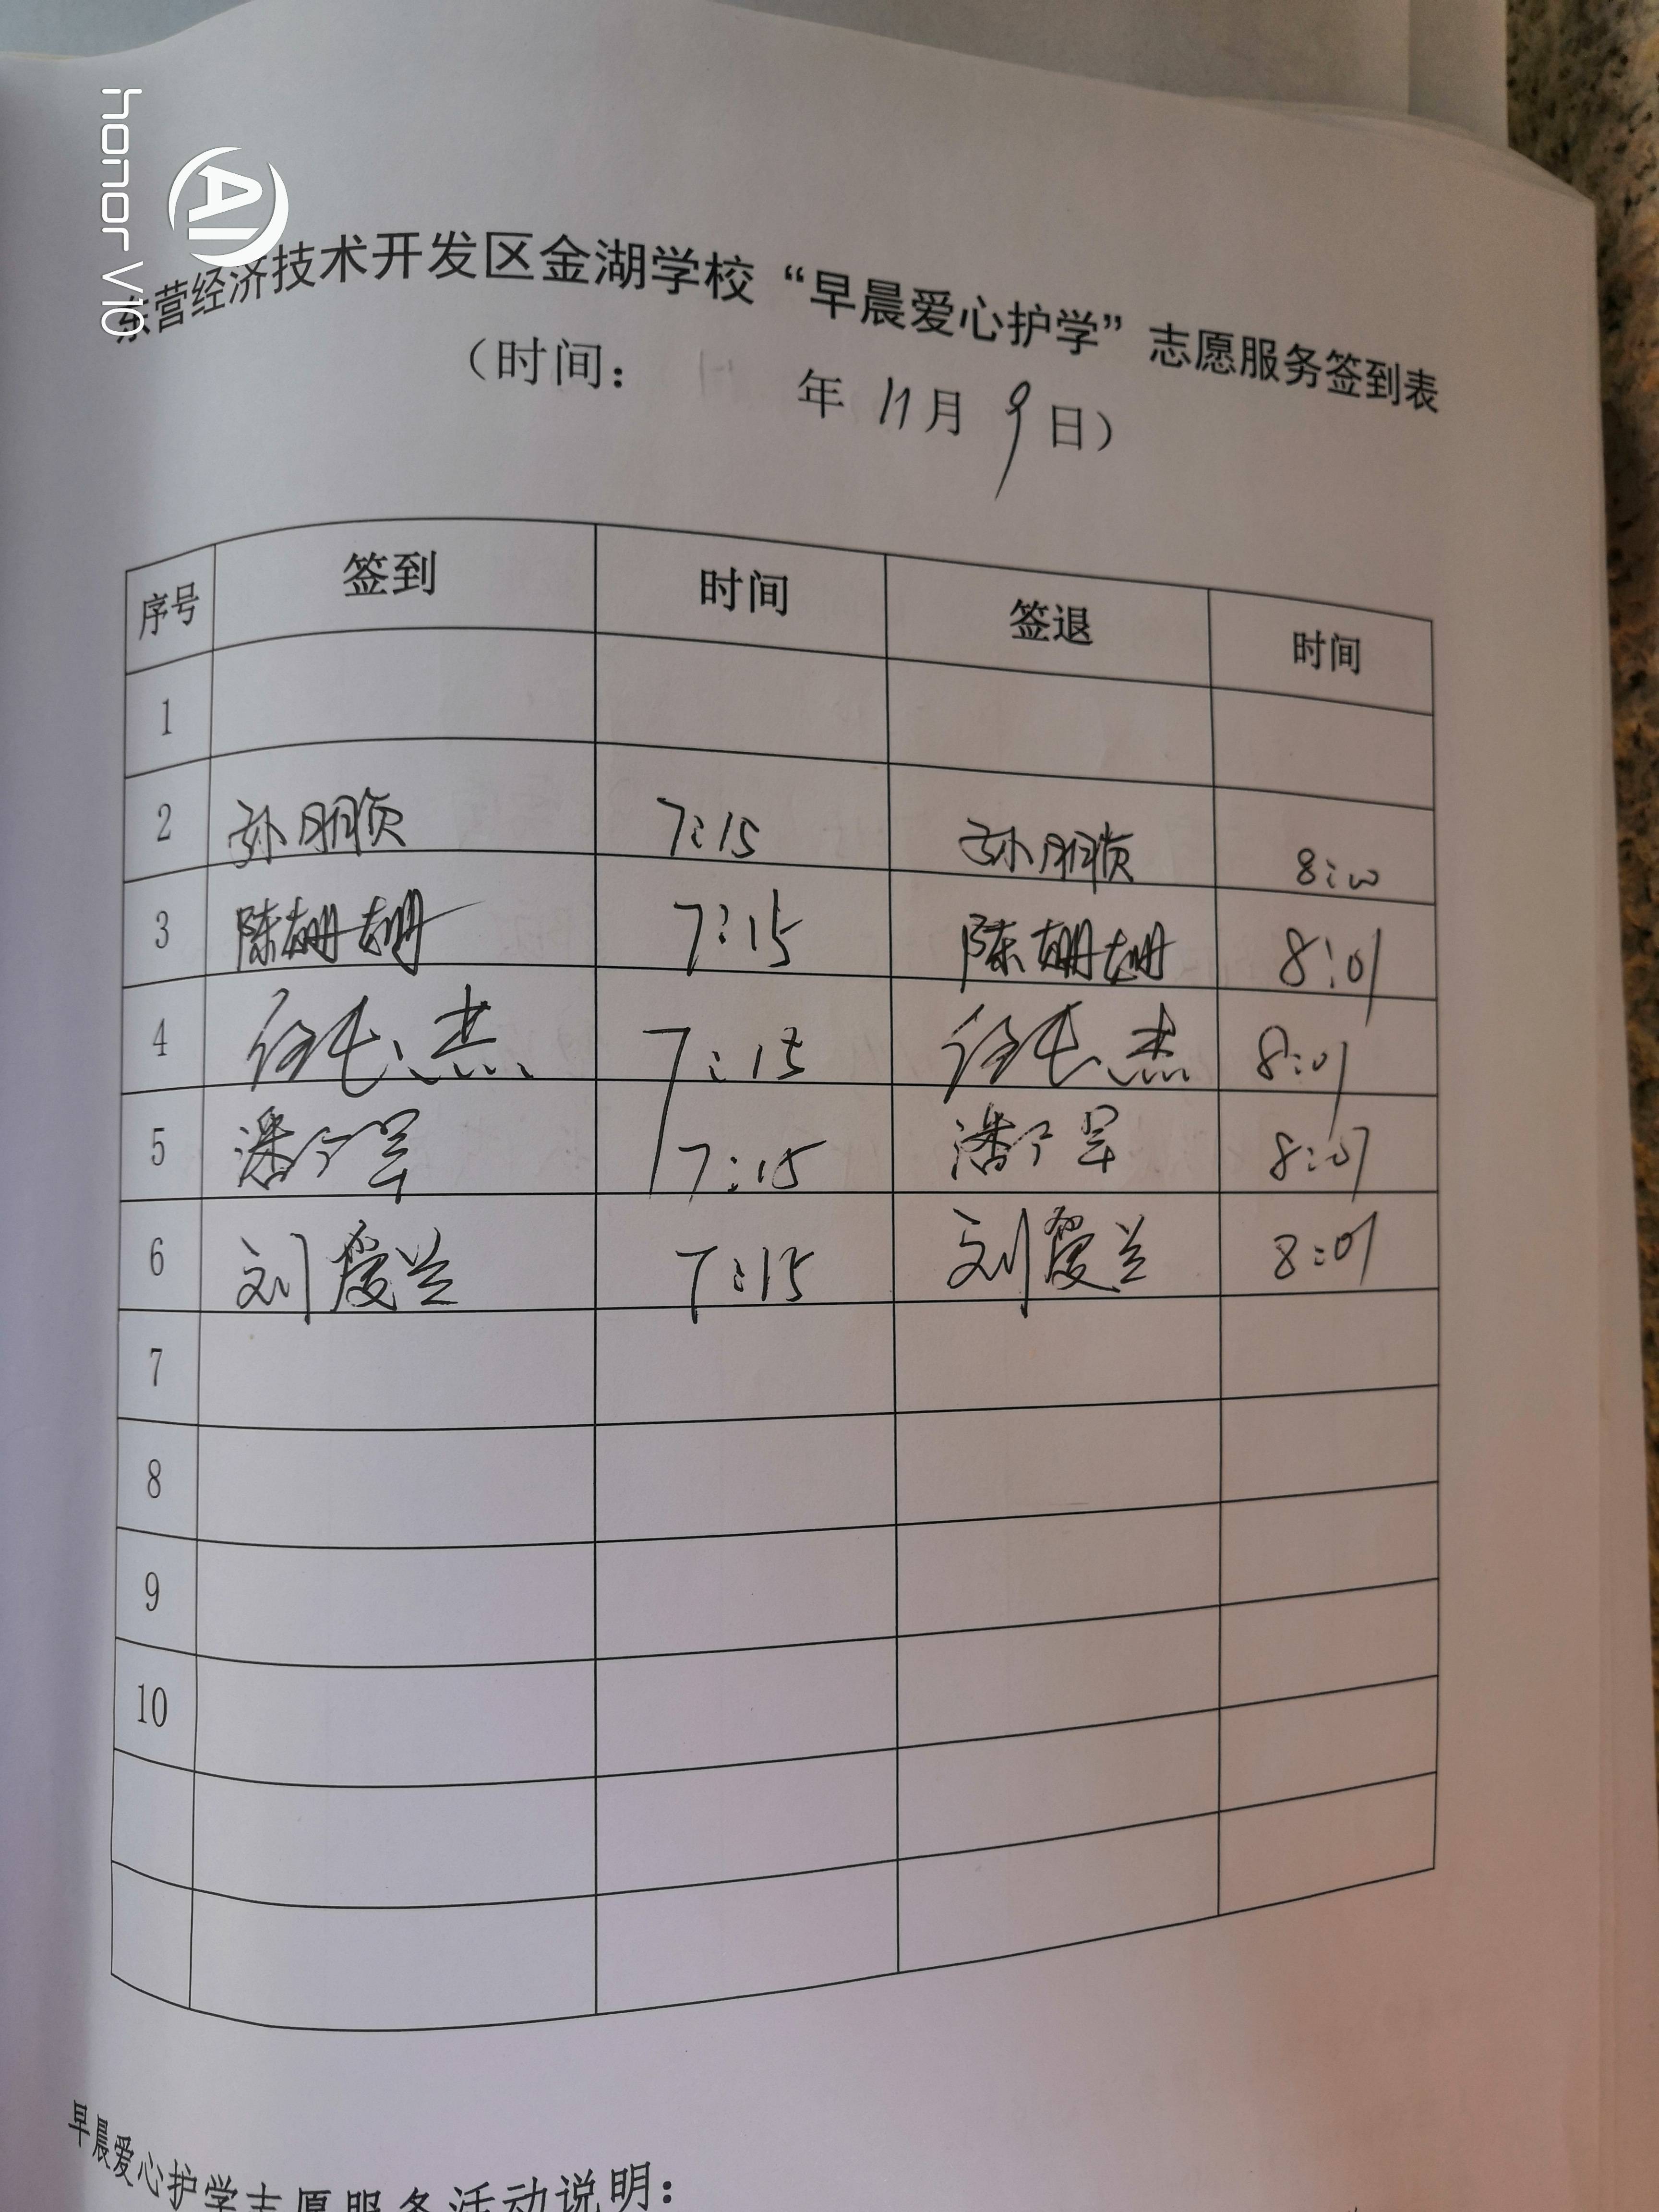 honor V10
AI
东营经济技术开发区金湖学校“早晨爱心护学”志愿服务签到表
（时间： 年 11月 9日）
序号 签到 时间 签退 时间
1
2 孙朋贞 7:15 孙朋贞 8:00
3 陈姗姗 7:15 陈姗姗 8:01
4 杰 7:15 杰 8:01
5 潘军 7:15 潘军 8:01
6 刘爱兰 7:15 刘爱兰 8:01
7
8
9
10
早晨爱心护学志愿服务活动说明：